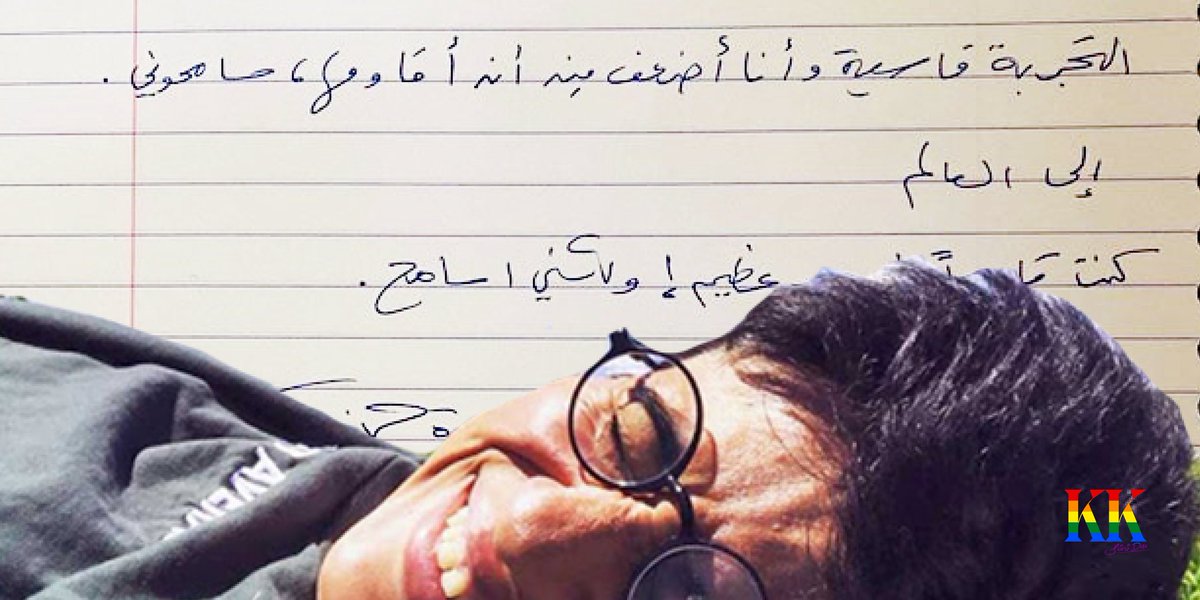 التَجربة قاسية وأنا أضعف مِن أن أقاومها، سامحوني.
إلى العالم
كنت عظيم! ولكني اسامح.
AVEN
KK